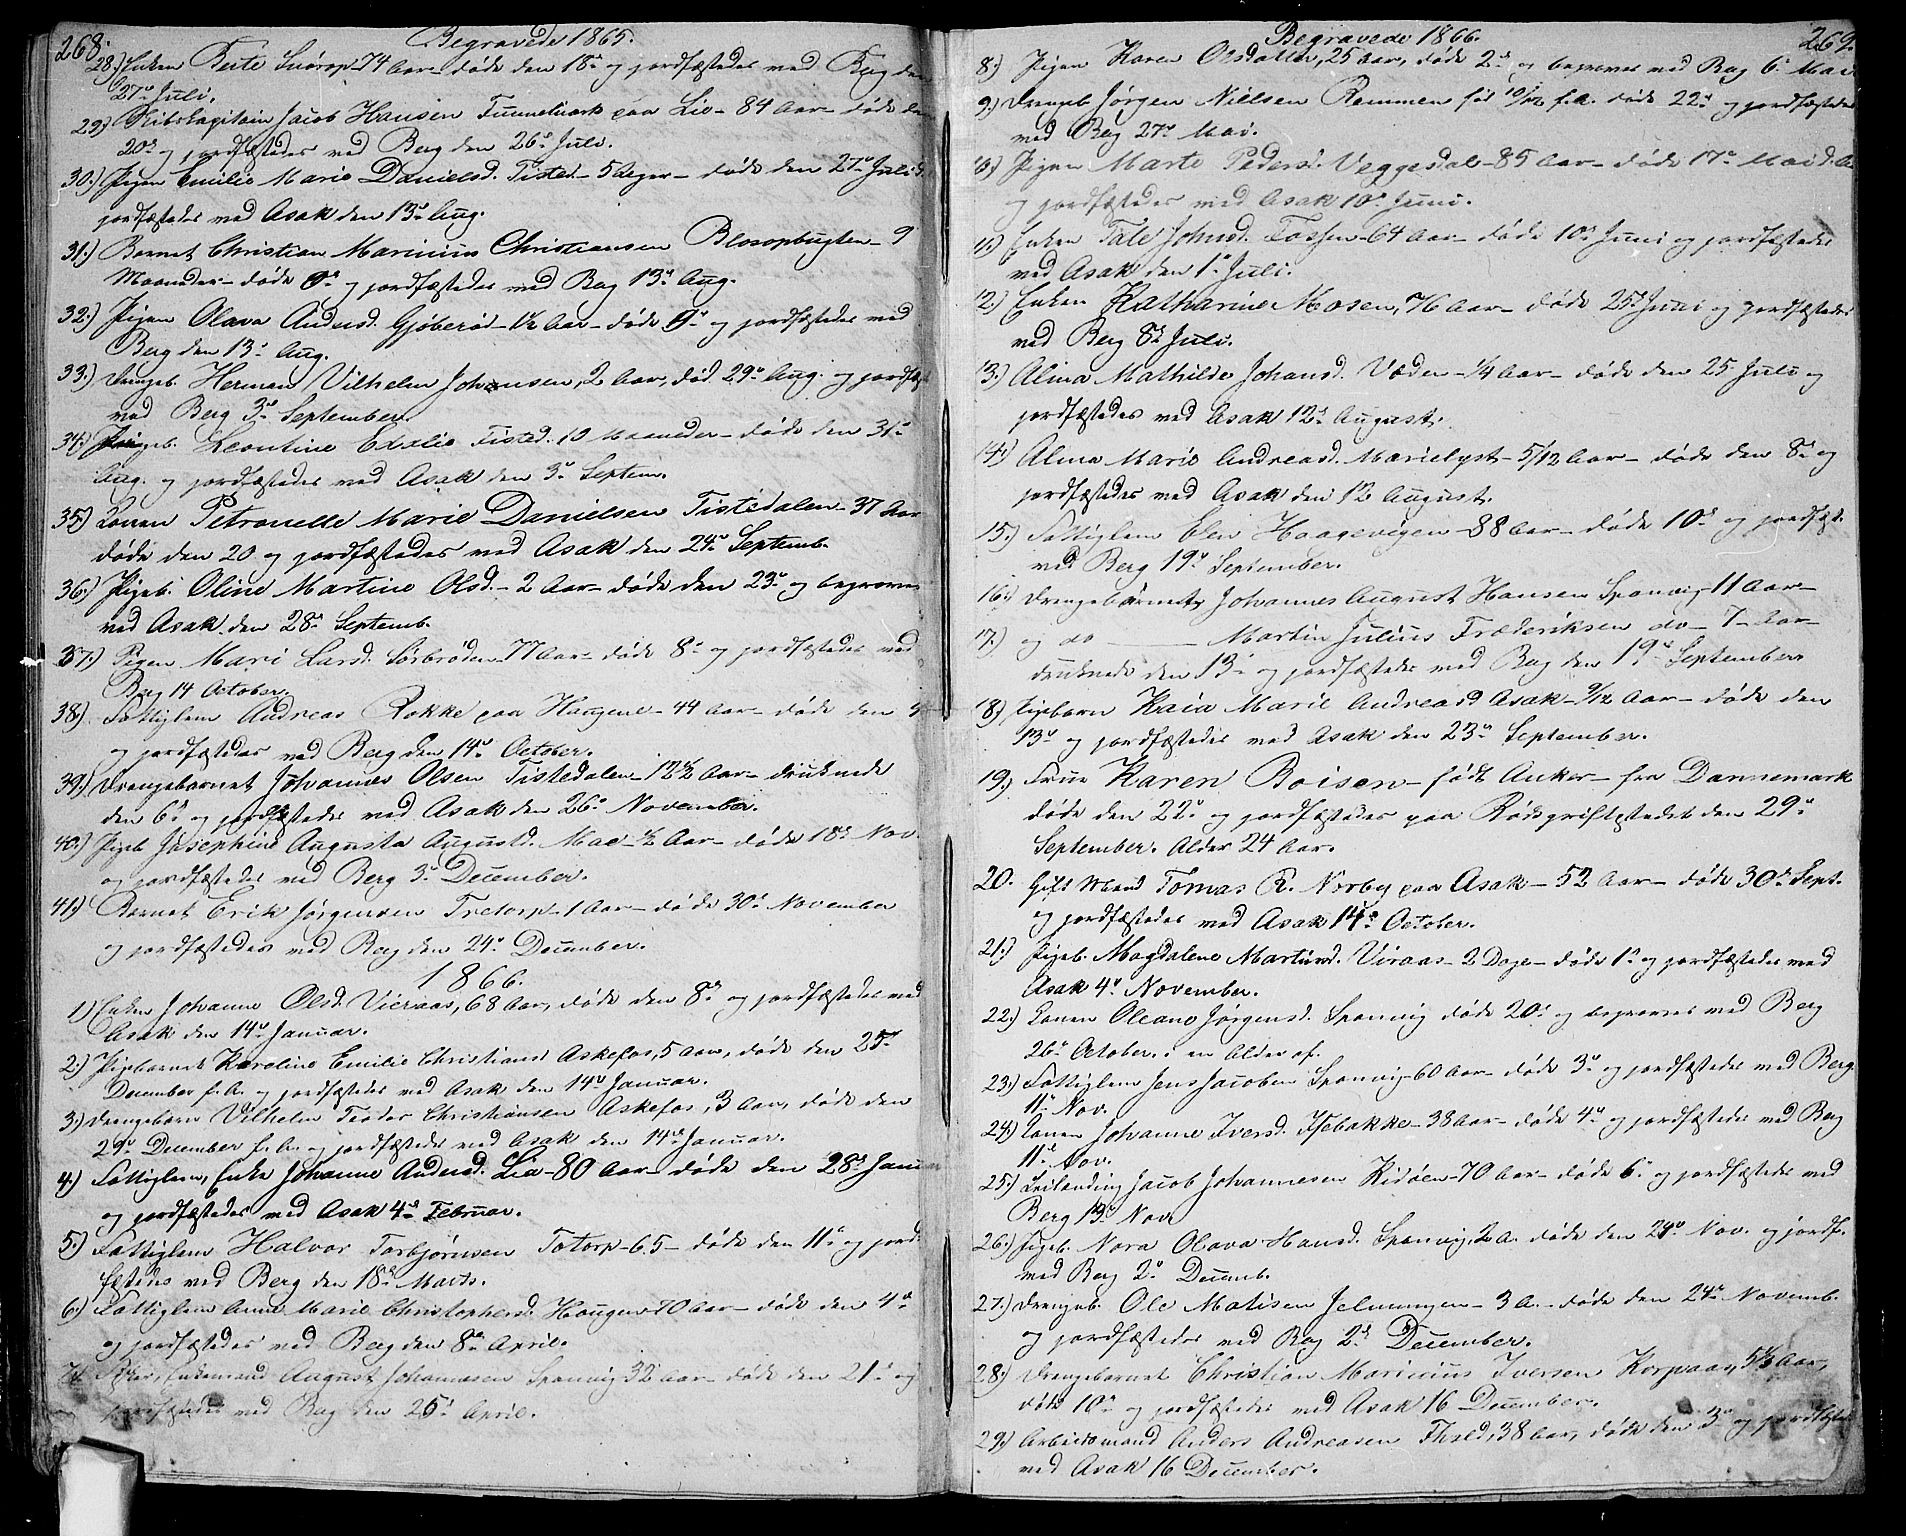 268.
Begravede 1865.
28.) Enken Berte Sverop 74 Aar – døde den 18de og jordfæstedes ved Berg den
27de Juli.
29.) Skibskapitain Jacob Hansen paa Lie – 84 Aar – døde den
20de og jordfæstedes ved Berg den 26de Juli.
30.) Pigen Emilie Marie Danielsd. Tisted – 5 – døde den 27de Juli
jordfæstedes ved Asak den 13de Aug.
31.) Barnet Christian Marinius Christiansen Blosopbugten – 9
Maaneder – døde 9de og jordfæstedes ved Berg 13de Aug.
32.) Pigen Olava Andersd. Gjøberød – 1½ Aar – døde 9de og jordfæstedes ved
Berg den 13de Aug.
33.) Drengeb. Herman Vilhelm Johansen, 2 Aar, død 29de Aug. og jordfæst
ved Berg 3de September.
34.) Pigeb. Leontine Edalie Tisted. 10 Maaneder – døde den 31te
Aug. og jordfæstedes ved Asak den 3de Septem.
35.) Konen Petronelle Marie Danielsen Tistedalen – 37 Aar
døde den 20 og jordfæstedes ved Asak den 24de Septemb.
36.) Pigeb. Oline Martine Olsd. – 2 Aar – døde den 23de og begraves
ved Asak den 28de Septemb.
37.) Pigen Mari Larsd. Sørbrøden – 77 Aar – døde 8de og jordfæstedes ved
Berg 14 October.
38.) Fattiglem Andreas Rokke paa Haugene – 44 Aar – døde den 9
og jordfæstedes ved Berg den 14de October.
39.) Drengebarnet Johannes Olsen Tistedalen – 12½ Aar – druknede
den 6te og jordfæstedes ved Asak den 26de November.
40.) Pigeb Josephine Augusta Augustd. Moe – ½ Aar – døde 18de Nov.
og jordfæstedes ved Berg 3de December.
41.) Barnet Erik Jørgensen Tretorp – 1 Aar – døde 30de November
og jordfæstedes ved Berg den 24de December.
1866.
1) Enken Johanne Olsd. Vieraas, 68 Aar, døde den 8de og jordfæstedes ved
Asak den 14de Januar.
2.) Pigebarnet Karoline Emilie Christiansd Askefos, 5 Aar, døde den 25de
December f. A. og jordfæstedes ved Asak den 14de Januar.
3.) Drengebarn Vilhelm Teodor Christiansen Askefos, 3 Aar, døde den
29de December f. A. og jordfæstedes ved Asak den 14de Januar.
4.) Fattiglem, Enke Johanne Andersd. Lia – 80 Aar – døde den 28de Januar
og jordfæstedes ved Asak 4de Februar.
5.) Fattiglem Halvor Torbjørnsen Totorp – 65 – døde den 11te og jord-
fæstedes ved Berg den 18de Marts.
6.) Fattiglem Anne Marie Christophersd. Haugen – 70 Aar – døde den 4de
og jordfæstedes ved Berg den 8de April.
7.) Enkemand August Johannesen Sponvig 32 Aar – døde den 21de og
jordfæstedes ved Berg den 25de April.
Begravede 1866.
269.
8.) Pigen Karen Olsdatter, 25 Aar, døde 2de og begraves ved Berg 6te Mai
9.) Drengeb. Jørgen Nielsen Remmen fød 19/12 f. A. døde 22de og jordfæstedes
ved Berg 27de Mai.
10.) Pigen Marte Pedersd. Veggesdal – 85 Aar – døde 17de Mai d. A.
og jordfæstedes ved Asak 10de Juni.
11.) Enken Tale Johnsd. Fossen – 64 Aar – døde 10de Juni og jordfæstedes
ved Asak den 1te Juli.
12.) Enken Katharine Mosen, 76 Aar – døde 25de Juni og jordfæstedes
ved Berg 8de Juli.
13.) Alma Mathilde Johansd. Væden – ¼ Aar – døde den 25 Juli og
jordfæstedes ved Asak 12te August.
14.) Alma Marie Andreasd. Marielyst – 5/12 Aar – døde den 8de og
jordfæstedes ved Asak den 12 August.
15.) Fattiglem Elen Haagevigen – 88 Aar – døde 10de og jordfæst.
ved Berg 19de September.
16.) Drengebarnet Johannes August Hansen Sponvig – 11 Aar –
17.) og do — Martin Julius Fræderiksen do – 7 – Aar –
druknede den 13de og jordfæstedes ved Berg den 19de September
18.) Pigebarn Kaia Marie Andreasd Asak – 9/12 Aar – døde den
13de og jordfæstedes ved Asak den 23de September.
19.) Frue Karen Boisen – født Anker – fra Dannemark
døde den 22de og jordfæstedes paa Rødsgriftæstedet den 29de
September. Alder 24 Aar.
20. Gift Mand Tomas R. Norby paa Asak – 52 Aar – døde 30te Sept.
og jordfæstedes ved Asak 14de October.
21.) Pigeb. Magdalene Martinsd. Viraas – 2 Dage – døde 1te og jordfæstedes ved
Asak 4de November.
22.) Konen Oleane Jørgensd. Sponvig døde 20de og begraves ved Berg
26de October. i en Alder af.
23.) Fattiglem Jens Jacobsen Sponvig – 60 Aar – døde 3de og jordfæstedes ved Berg
11te Nov.
24.) Konen Johanne Iversd. Isebakke – 38 Aar – døde 4de og jordfæstedes ved Berg
11te Nov.
25.) Leilænding Jacob Johannesen Kidøen – 70 Aar – døde 6te og jordfæstedes ved
Berg 13de Nov.
26.) Pigeb. Nora Olava Hansd. Sponvig, 2 A. døde den 24de Nov. og jordf.
ved Berg 2de Decemb.
27.) Drengeb. Ole Matisen Jelmungen – 3 A. – døde den 24de Novemb.
og jordfæstedes ved Berg 2de December.
28.) Drengebarnet Christian Marinius Iversen Korpaas, 5½ Aar,
døde 10de og jordfæstedes ved Asak 16 December.
29.) Arbeidsmand Anders Andreasen 38 Aar, døde den 3de og jordfæstedes
ved Asak 16 December.